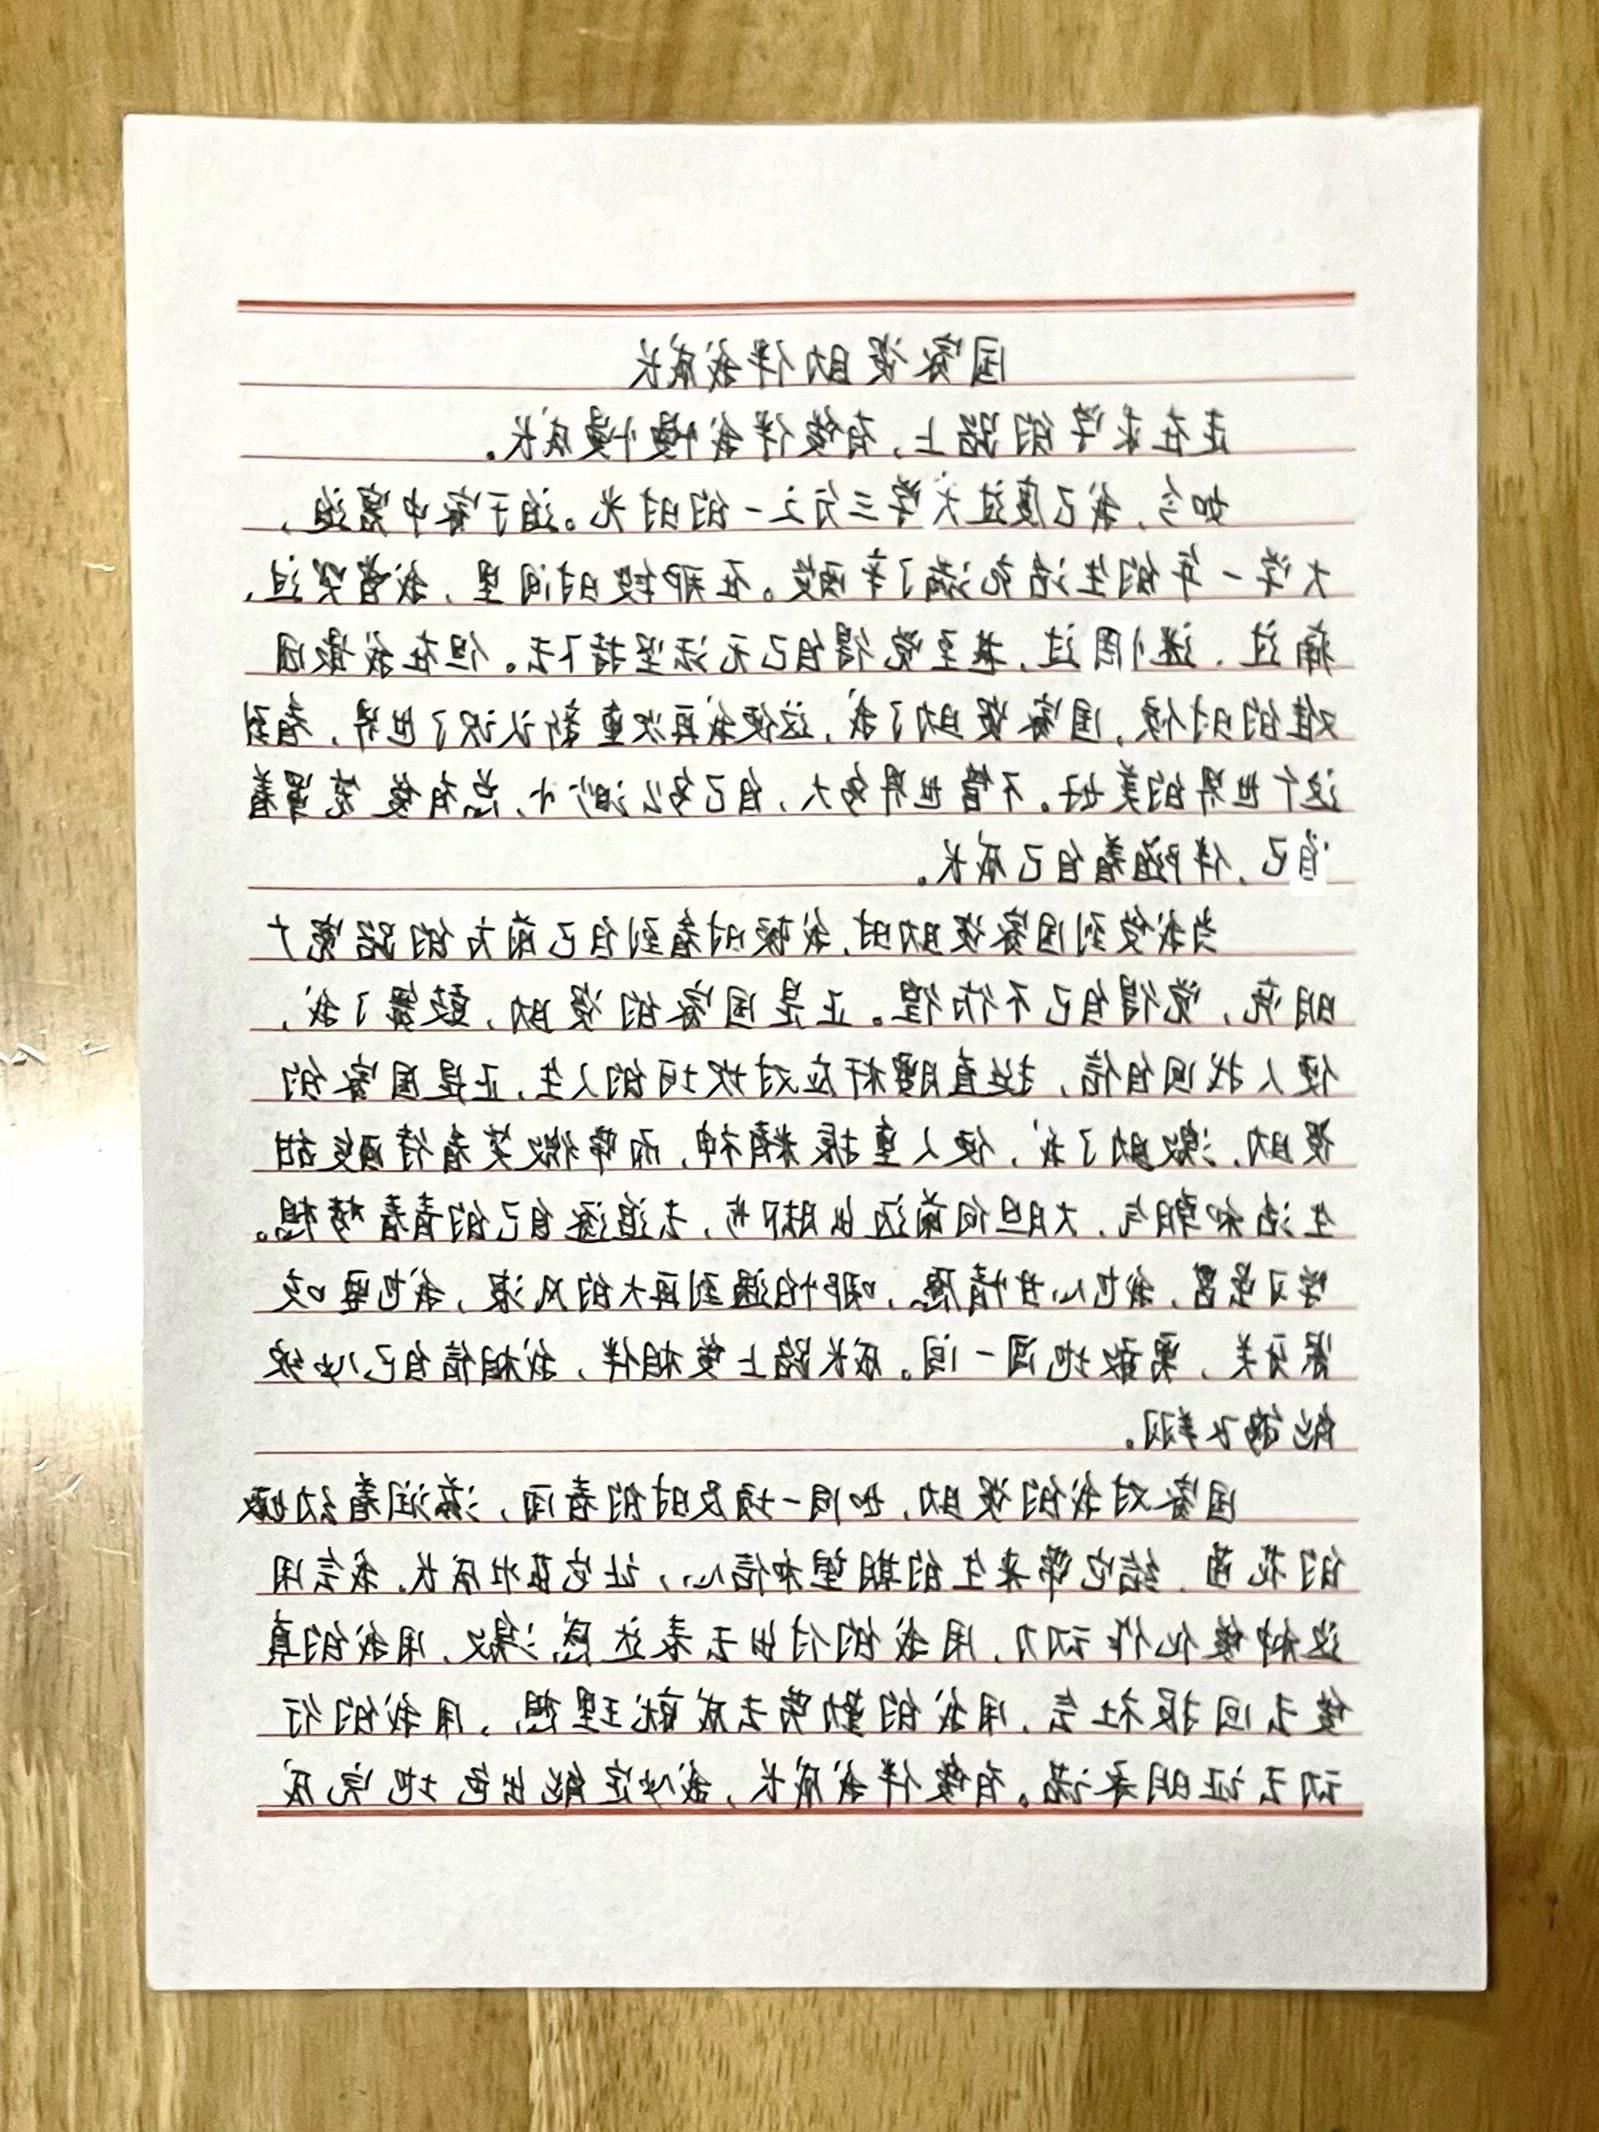 国家资助伴我成长
走在求学的路上,有爱伴我慢慢成长。
如今,我已度过大学三分之一的时光。迫于家中窘迫,
大学一年的生活充满了辛酸。在那段时间里,我曾哭过、
痛过、迷惘过,甚至觉得自己无法坚持下去。但在我最困
难的时候,国家资助了我,这使我再次重新认识了世界,看到
这个世界的美好。不管世界多大,自己多么渺小,总有爱笼罩着
自己,伴随着自己成长。
当我受到国家资助时,我顿时看到自己前方的路宽广
明亮,觉得自己不彷徨。正是国家的资助,鼓舞了我,
使人找回自信,挺直腰杆应对坎坷的人生,正是国家的
资助,激励了我,使人重振精神,而常微笑看待酸甜
生活和朝气,大胆向前迈出脚步,去追逐自己的青春梦想。
学习虽苦,我也心甘情愿,哪怕遇到再大的风浪,我也要咬
紧牙关,勇敢地闯一闯。成长路上爱相伴,我相信自己必须
能够飞翔。
国家对我的资助,如同一场及时的春雨,滋润着幼嫩
的花苗,给它带来生的期望和信心,让它茁壮成长。我会用
这种爱化作动力,用我的付出去表达感激,用我的真
爱去回报社会,用我的勤劳去成就理想,用我的行
动去证明承诺。有爱伴我成长,我必定能出色地完成